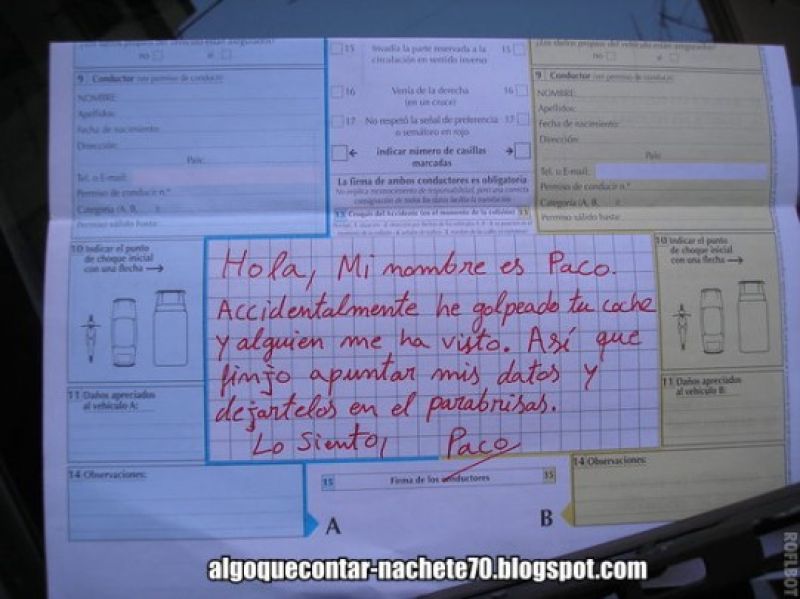 no sí
9 Conductor (ver permiso de conducir)
NOMBRE:
Apellidos:
Fecha de nacimiento:
Dirección:
País:
Tel. o E-mail:
Permiso de conducir n.º
Categoría (A, B, )
Permiso válido hasta:
10 Indicar el punto
de choque inicial
con una flecha →
11 Daños apreciados
al vehículo A:
14 Observaciones:
15 Invadía la parte reservada a la 15
circulación en sentido inverso
16 Venía de la derecha 16
(en un cruce)
17 No respetó la señal de preferencia 17
o semáforo en rojo
← indicar número de casillas →
marcadas
La firma de ambos conductores es obligatoria
13 Croquis del Accidente (en el momento de la colisión) 13
Hola, Mi nombre es Paco.
Accidentalmente he golpeado tu coche
y alguien me ha visto. Así que
finjo apuntar mis datos y
dejartelos en el parabrisas.
Lo siento, Paco
15 Firma de los conductores 15
A B
no sí
9 Conductor (ver permiso de conducir)
NOMBRE:
Apellidos:
Fecha de nacimiento:
Dirección:
País:
Tel. o E-mail:
Permiso de conducir n.º
Categoría (A, B, )
Permiso válido hasta:
10 Indicar el punto
de choque inicial
con una flecha →
11 Daños apreciados
al vehículo B:
14 Observaciones:
algoquecontar-nachete70.blogspot.com
ROFLBOT